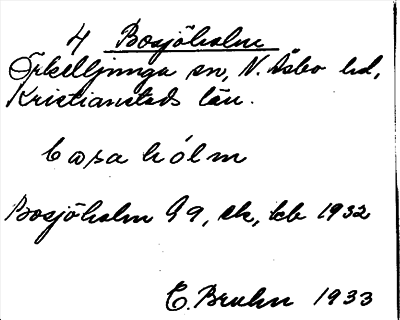 4 Bosjöholm
Örkelljunga sn, N. Åsbo hd,
Kristianstads län.
basahólm
Bosjöholm Gg, ek, kb 1932
E. Bruhn 1933